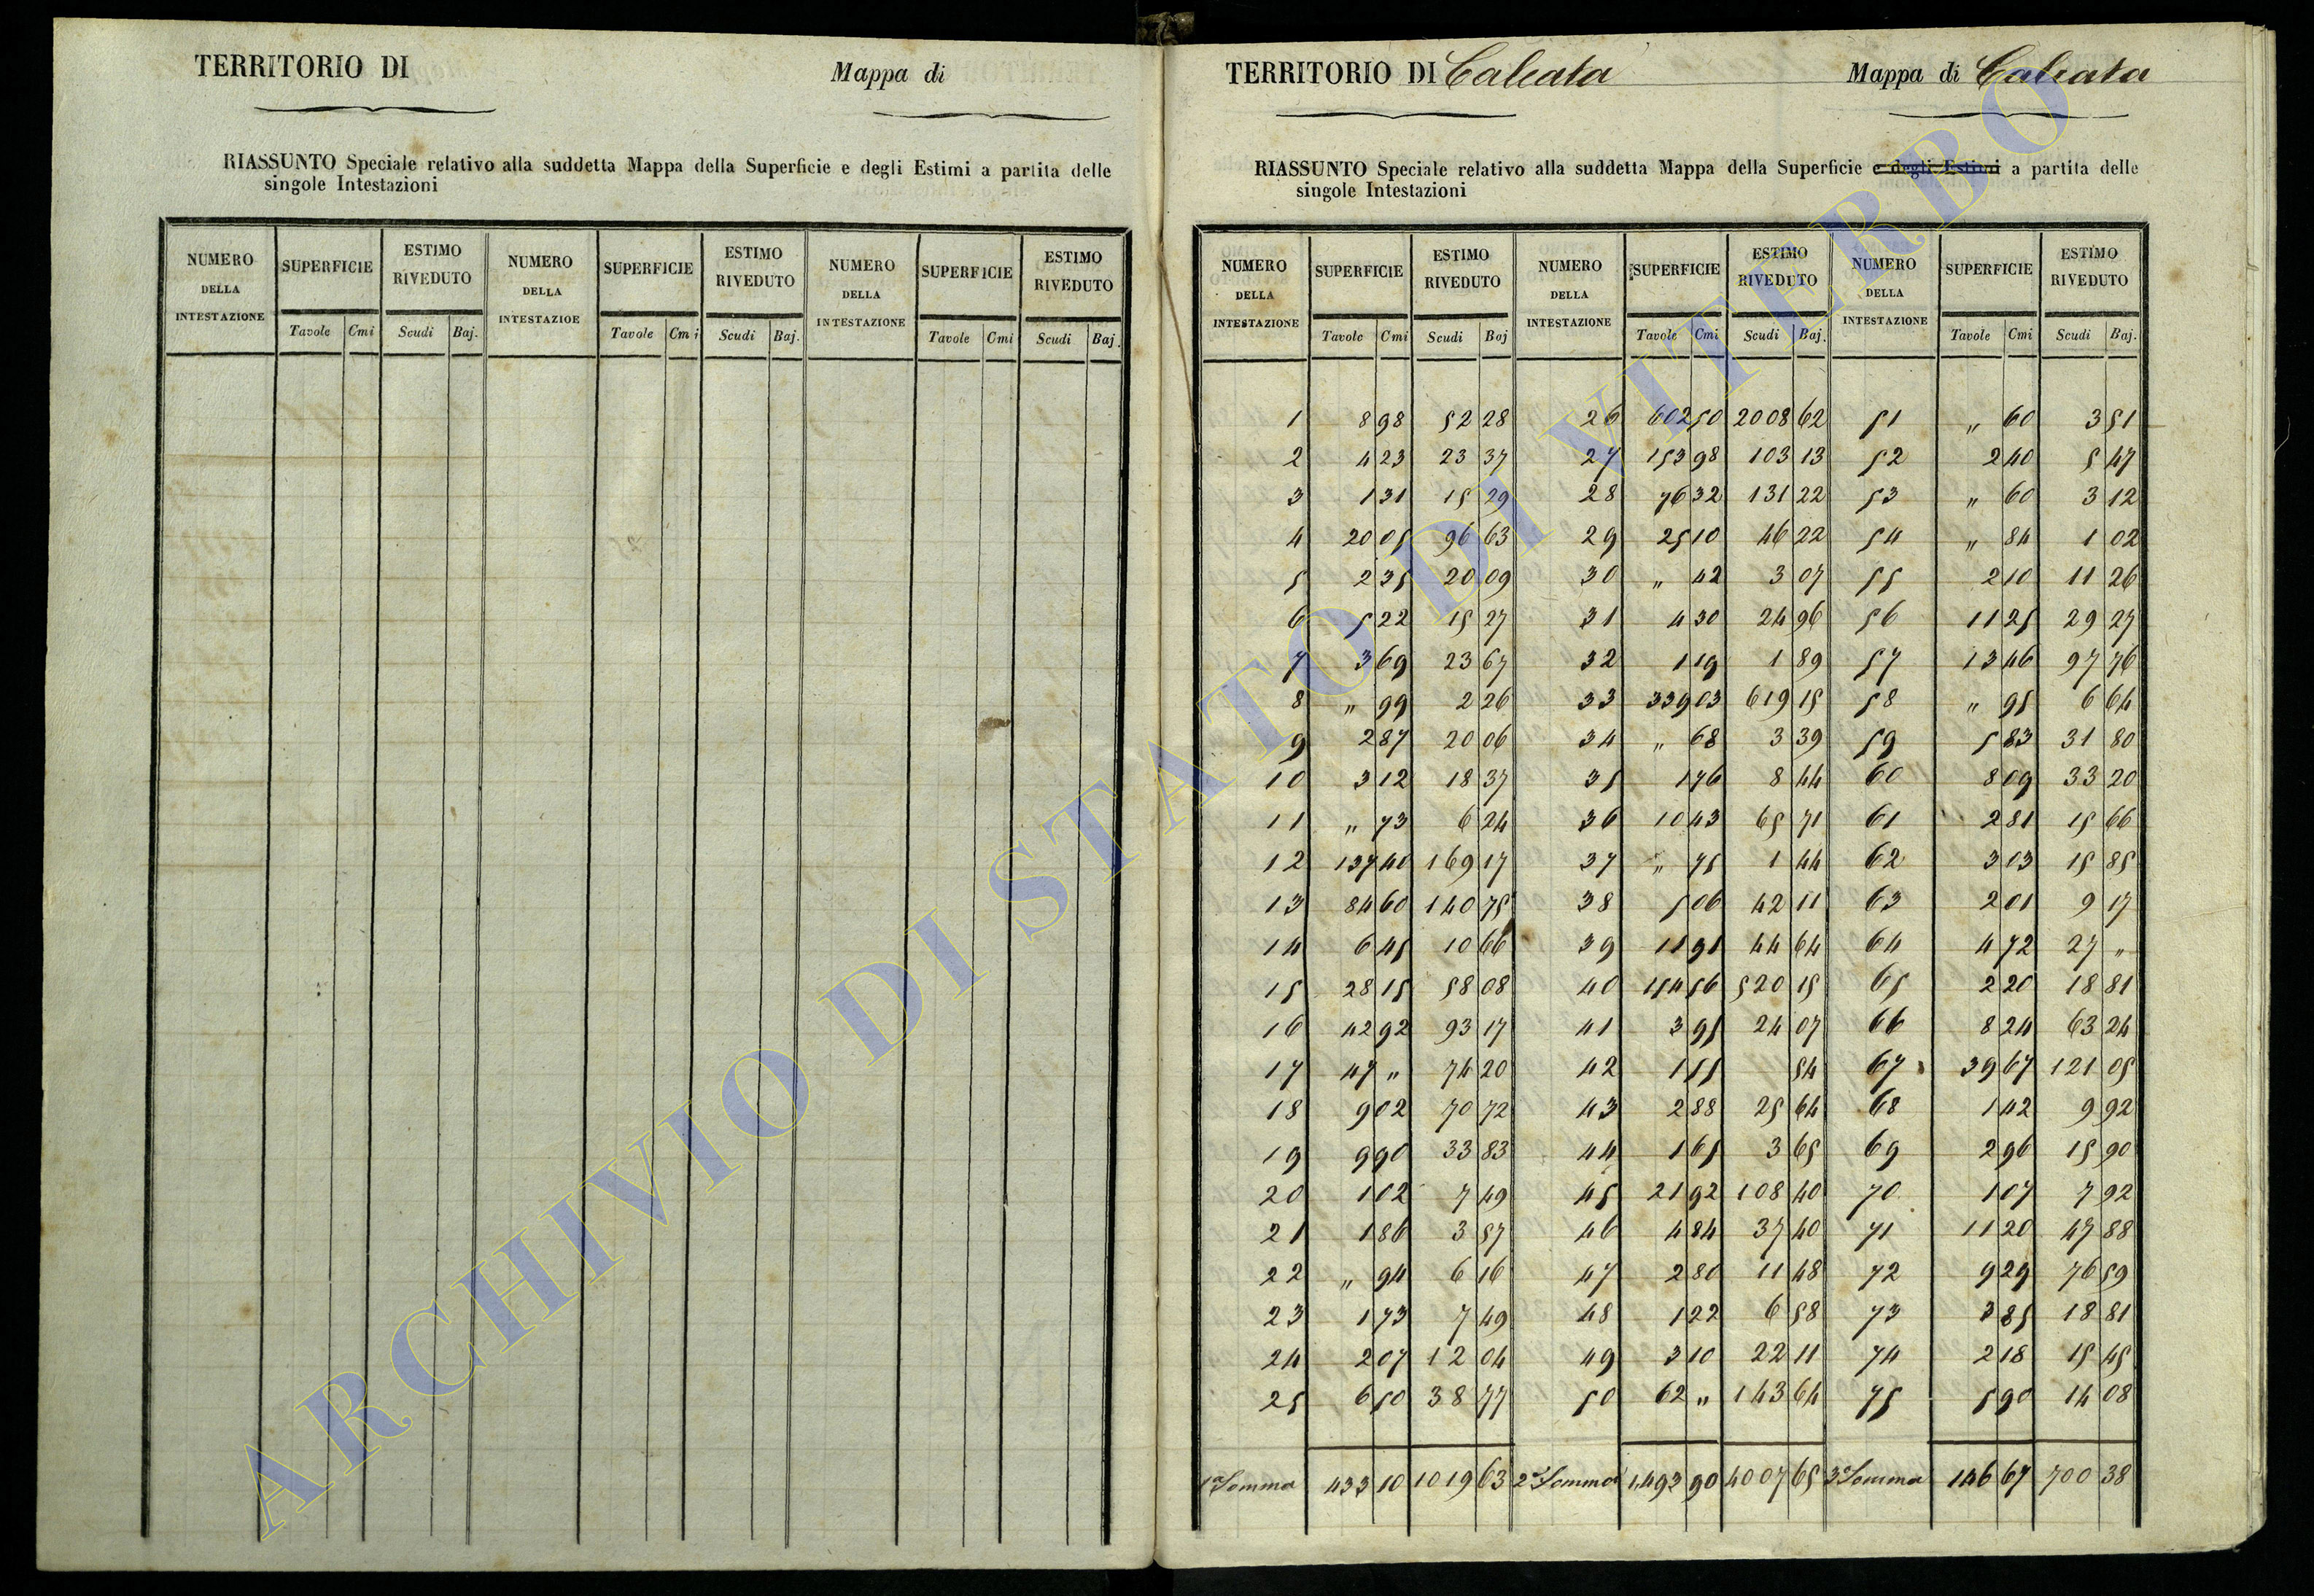 TERRITORIO DI
Mappa di
RIASSUNTO Speciale relativo alla suddetta Mappa della Superficie e degli Estimi a partita delle
singole Intestazioni
NUMERO DELLA INTESTAZIONE SUPERFICIE ESTIMO RIVEDUTO NUMERO DELLA INTESTAZIOE SUPERFICIE ESTIMO RIVEDUTO NUMERO DELLA INTESTAZIONE SUPERFICIE ESTIMO RIVEDUTO
Tavole Cmi Scudi Baj. Tavole Cmi Scudi Baj. Tavole Cmi Scudi Baj.
TERRITORIO DI Calcata
Mappa di Calcata
RIASSUNTO Speciale relativo alla suddetta Mappa della Superficie e degli Estimi a partita delle
singole Intestazioni
NUMERO DELLA INTESTAZIONE SUPERFICIE ESTIMO RIVEDUTO NUMERO DELLA INTESTAZIONE SUPERFICIE ESTIMO RIVEDUTO NUMERO DELLA INTESTAZIONE SUPERFICIE ESTIMO RIVEDUTO
Tavole Cmi Scudi Baj Tavole Cmi Scudi Baj. Tavole Cmi Scudi Baj.
1 8 98 52 28 26 602 50 2008 62 51 " 60 3 51
2 4 23 23 37 27 153 98 103 13 52 2 40 5 47
3 1 31 15 29 28 76 32 131 22 53 " 60 3 12
4 20 05 96 63 29 25 10 46 22 54 " 84 1 02
5 2 35 20 09 30 " 42 3 07 55 2 10 11 26
6 5 22 15 27 31 4 30 24 96 56 11 25 29 27
7 3 69 23 67 32 1 19 1 89 57 13 46 97 76
8 " 99 2 26 33 339 03 619 15 58 " 95 6 64
9 2 87 20 06 34 " 68 3 39 59 5 83 31 80
10 3 12 18 37 35 1 76 8 44 60 8 09 33 20
11 " 73 6 24 36 10 43 65 71 61 2 81 15 66
12 137 40 169 17 37 " 75 1 44 62 3 03 15 85
13 84 60 140 75 38 5 06 42 11 63 2 01 9 17
14 6 45 10 66 39 11 91 44 64 64 4 72 27 "
15 28 15 58 08 40 154 56 520 15 65 2 20 18 81
16 42 92 93 17 41 3 95 24 07 66 8 24 63 24
17 47 " 74 20 42 1 55 54 67 39 67 121 05
18 9 02 70 72 43 2 88 25 64 68 1 42 9 92
19 9 90 33 83 44 1 65 3 65 69 2 96 15 90
20 1 02 7 49 45 21 92 108 40 70 1 07 7 92
21 1 86 3 57 46 4 84 37 40 71 11 20 47 88
22 " 94 6 16 47 2 80 11 48 72 9 29 76 59
23 1 73 7 49 48 1 22 6 58 73 3 85 18 81
24 2 07 12 04 49 3 10 22 11 74 2 18 15 45
25 6 50 38 77 50 62 " 143 64 75 5 90 14 08
1a Somma 433 10 1019 63 2a Somma 1,493 90 4007 65 3a Somma 146 67 700 38
ARCHIVIO DI STATO DI VITERBO